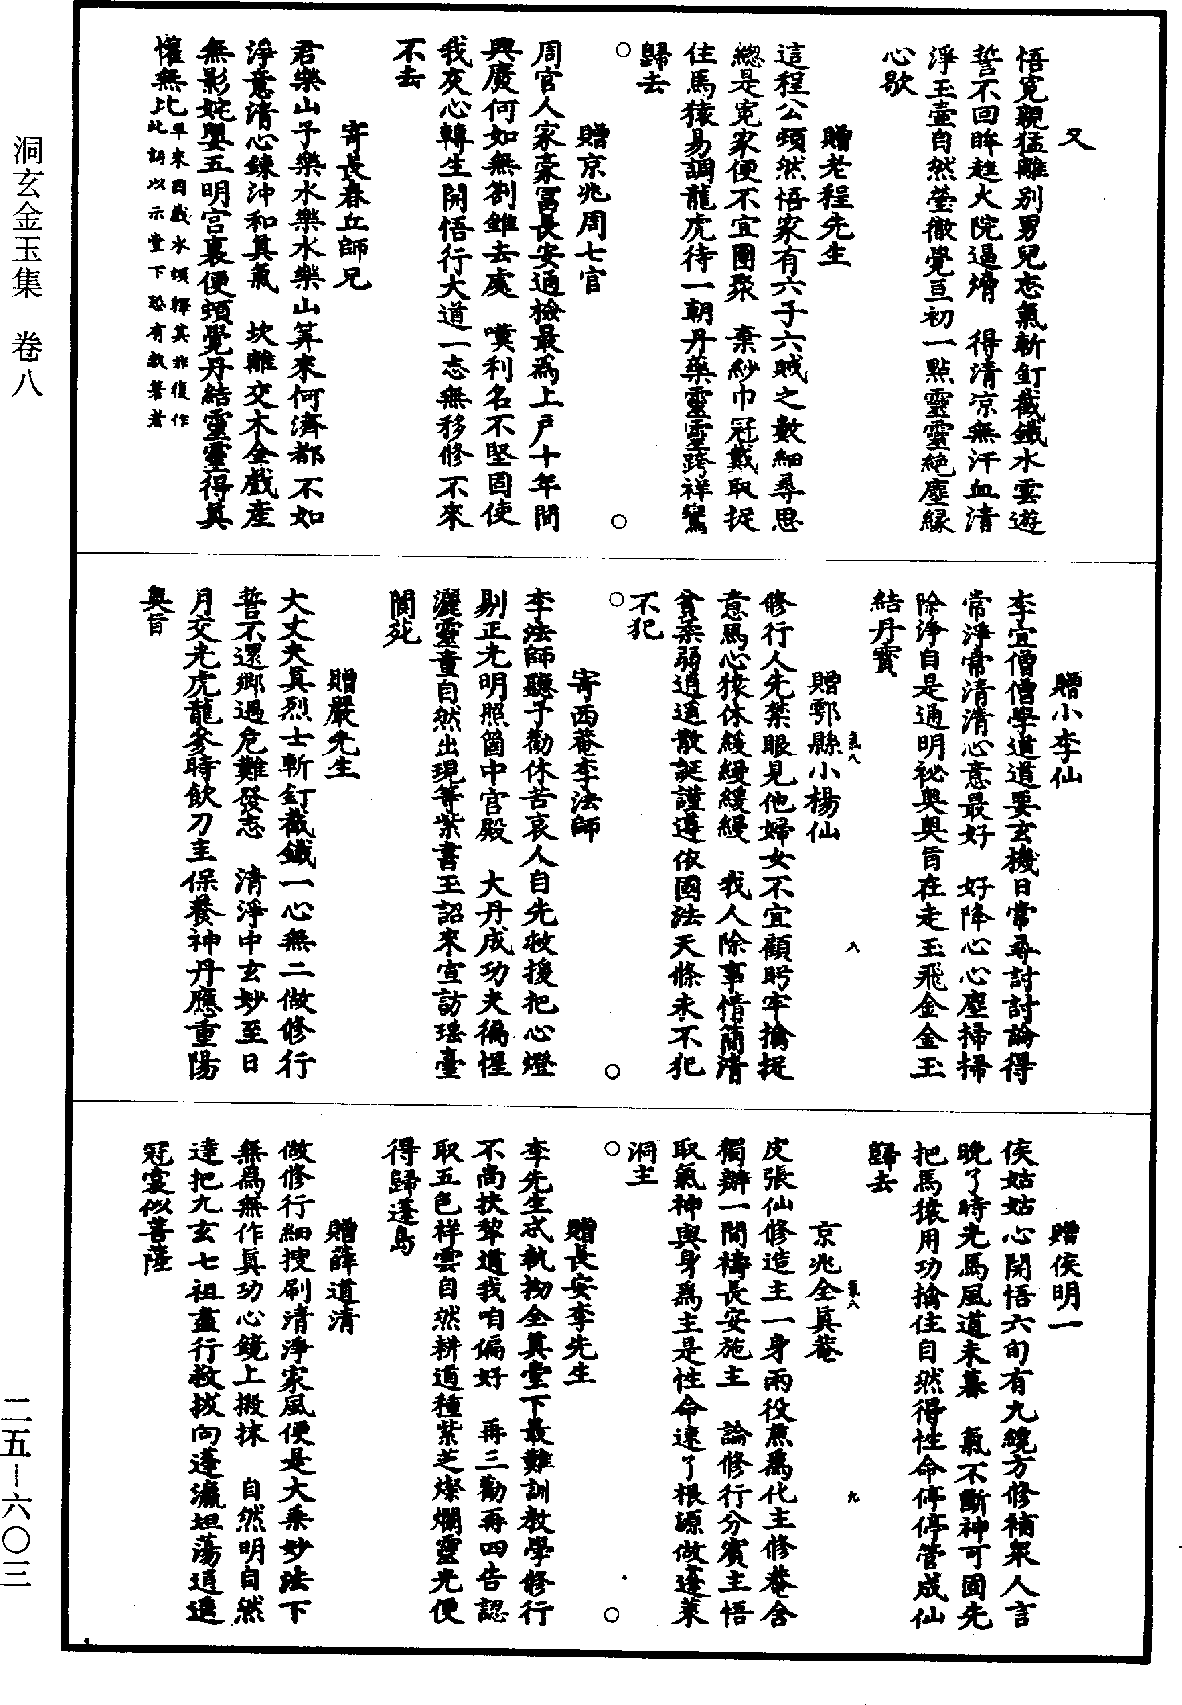 又
悟冤親猛離別男兒志氣斬釘截鐵水雲遊
誓不回眸趖火院逼㸌　得清凉無汗血清
淨玉壺自然瑩徹覺亘初一點靈靈絶塵緣
心歇
贈老程先生
這程公頓然悟家有六子六賊之數細尋思
緫是寃家便不宜團聚　棄紗巾冠戴取捉
住馬猿易調龍虎待一朝丹藥靈靈跨祥鸞
歸去
贈京兆周七官
周官人家豪富長安通檢最爲上戶十年間
興廢何如無劄錐去處　嘆利名不堅固使
我灰心轉生開悟行大道一志無移修不來
不去
寄長春丘師兄
君樂山予樂水樂水樂山筭來何濟都不如
淨意清心鍊沖和眞氣　坎離交木金戲產
無影姹嬰五明宮裏便頓覺丹結靈靈得眞
懽無比
早來因戲水頓釋其非復作
此詞以示堂下恐有教著者
贈小李仙
李宜僧僧學道道要玄機日常尋討討論得
常淨常清清心意最好　好降心心塵掃掃
除淨自是通明祕奥奥旨在走玉飛金金玉
結丹寳
贈鄠縣小楊仙
修行人先禁眼見他婦女不宜顧盻牢擒捉
意馬心猿休緩緩緩緩　我人除事情簡清
貧柔弱逍遥散誕謹遵依國法天條未不犯
不犯
寄西菴李法師
李法師聽予勸休苦哀人自先救援把心燈
剔正光明照箇中宮殿　大丹成功夫徧惺
灑靈童自然出現等紫書玉詔來宣訪瑶臺
閬苑
贈嚴先生
大丈夫眞烈士斬釘截鐵一心無二做修行
誓不還鄉遇危難發志　清淨中玄妙至日
月交光虎龍叅時飲刀圭保養神丹應重陽
奥旨
贈侯明一
侯姑姑心開悟六旬有九纔方修補衆人言
晚了時光馬風道未暮　氣不斷神可固先
把馬猿用功擒住自然得性命停停管成仙
歸去
京兆全眞菴
皮張仙修造主一身兩役焦爲化主修菴舍
獨辦一間禱長安施主　論修行分賓主悟
取氣神與身爲主是性命速了根源做蓬萊
洞主
贈長安李先生
李先生忒執抝全眞堂下最難訓教學修行
不尚扶犂道我咱偏好　再三勸再四告認
取五色祥雲自然耕道種紫芝燦爛靈光便
得歸蓬島
贈薛道清
做修行細搜刷清淨家風便是大乘妙法下
無爲無作眞功心鏡上搬抹　自然明自然
達把九玄七祖盡行救拔向蓬瀛坦蕩逍遥
冠裳似菩薩
洞玄金玉集　卷八
二五—六〇三